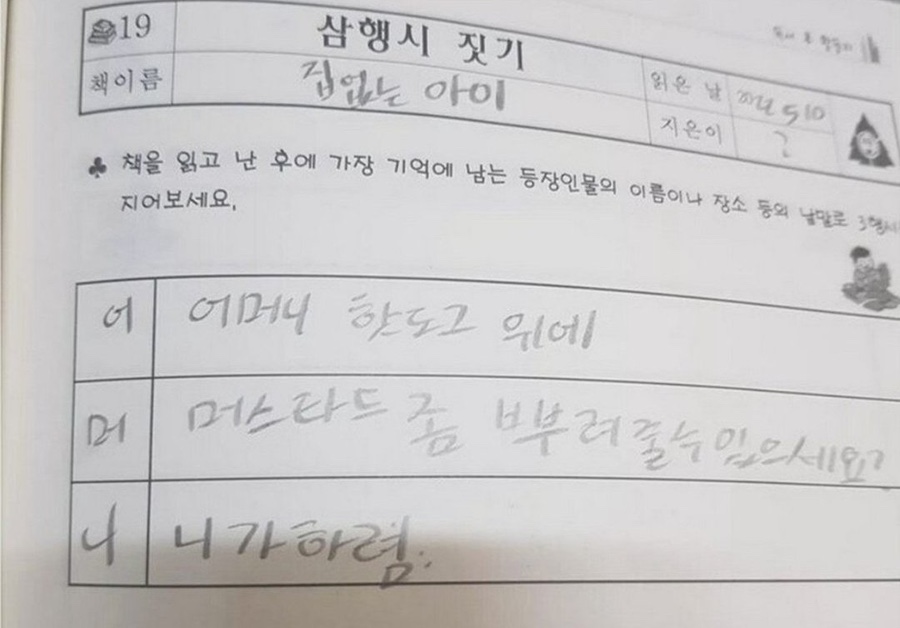 19 삼행시 짓기
책이름 집없는 아이 읽은 날 510
지은이 ?
♣ 책을 읽고 난 후에 가장 기억에 남는 등장인물의 이름이나 장소 등의 낱말로 3행시
지어보세요.
어 어머니 핫도그 위에
머 머스타드 좀 뿌부려줄수있으세요?
니 니가하렴.